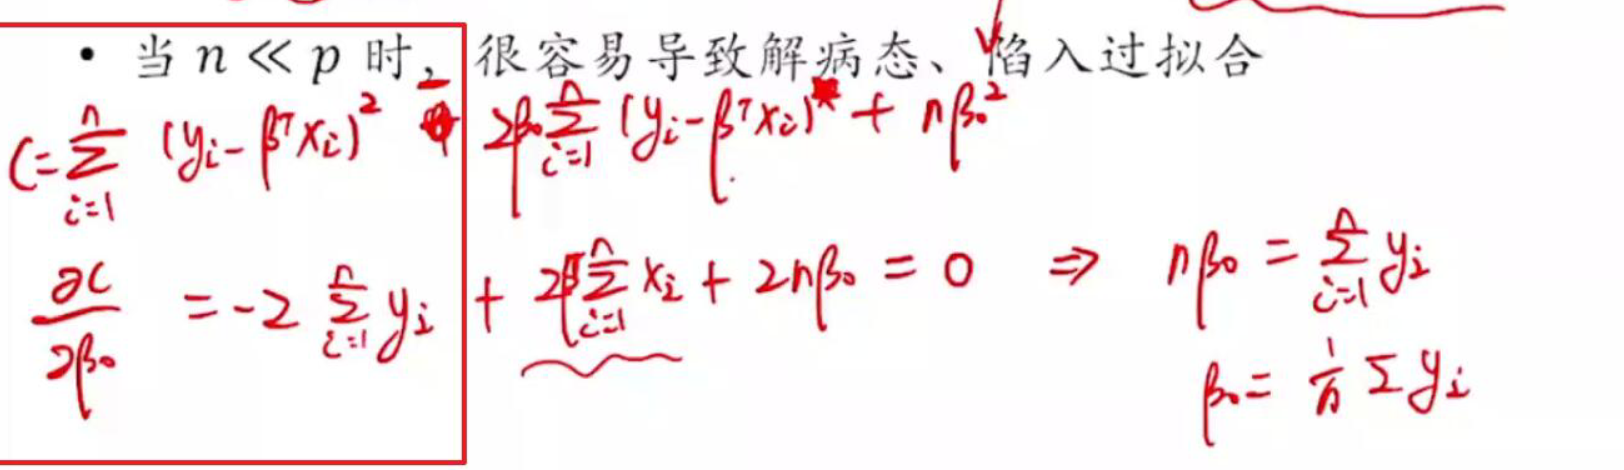 • 当 n ≪ p 时，很容易导致解病态、陷入过拟合
C = ∑_{i=1}^{n} (y_i − β^T x_i)^2 − 2β_0 ∑_{i=1}^{n} (y_i − β^T x_i) + nβ_0^2
∂C/∂β_0 = −2 ∑_{i=1}^{n} y_i + 2β^T ∑_{i=1}^{n} x_i + 2nβ_0 = 0 ⇒ nβ_0 = ∑_{i=1}^{n} y_i
β_0 = 1/n ∑ y_i